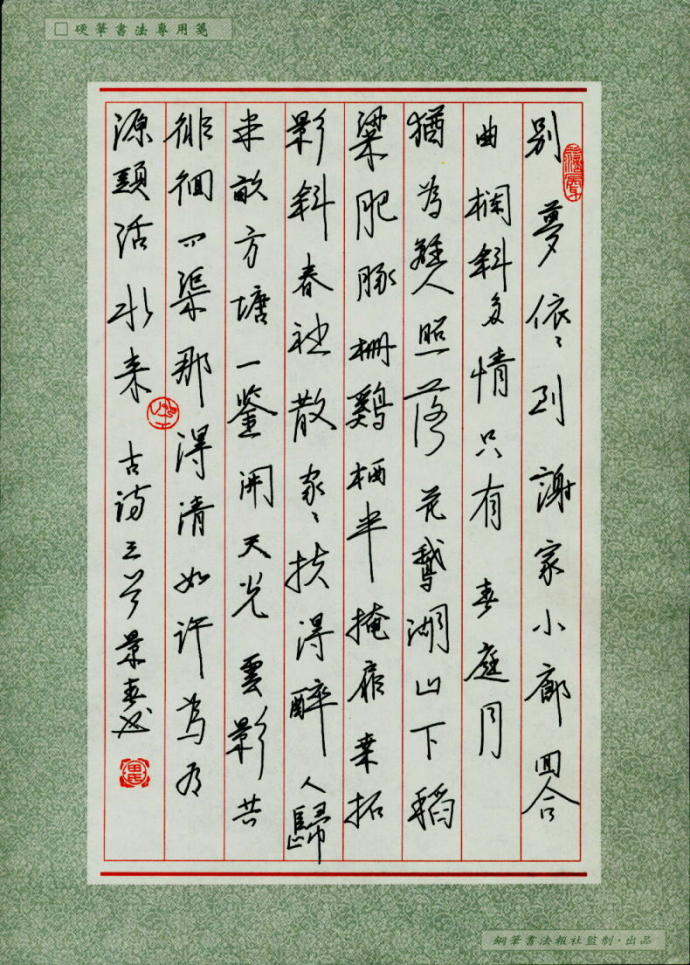 硬筆書法專用箋
别夢依〻到謝家小廊回合
曲欄斜多情只有春庭月
猶為離人照落花鵝湖山下稻
粱肥豚栅鷄栖半掩扉桑拓
影斜春社散家〻扶得醉人歸
半畝方塘一鑒開天光雲影共
徘徊四渠那得清如许為有
源頭活水来 古诗三首 景春書
鋼筆書法報社監制·出品